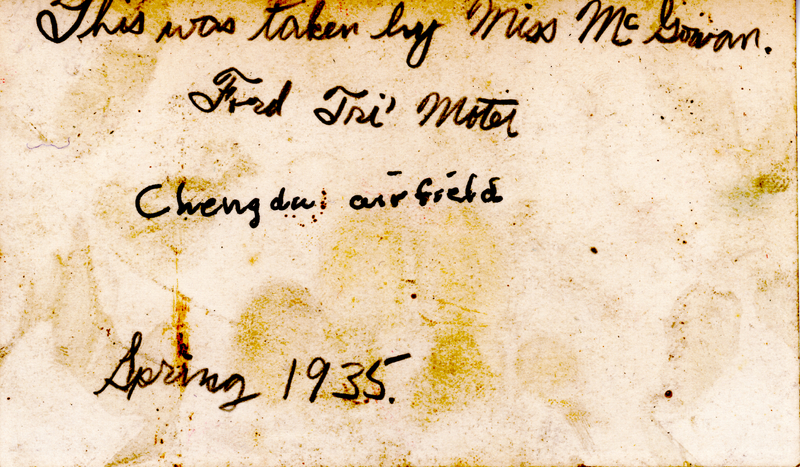 This was taken by Miss McGowan.
Ford Tri' Moter
Chengdu airfield
Spring 1935.